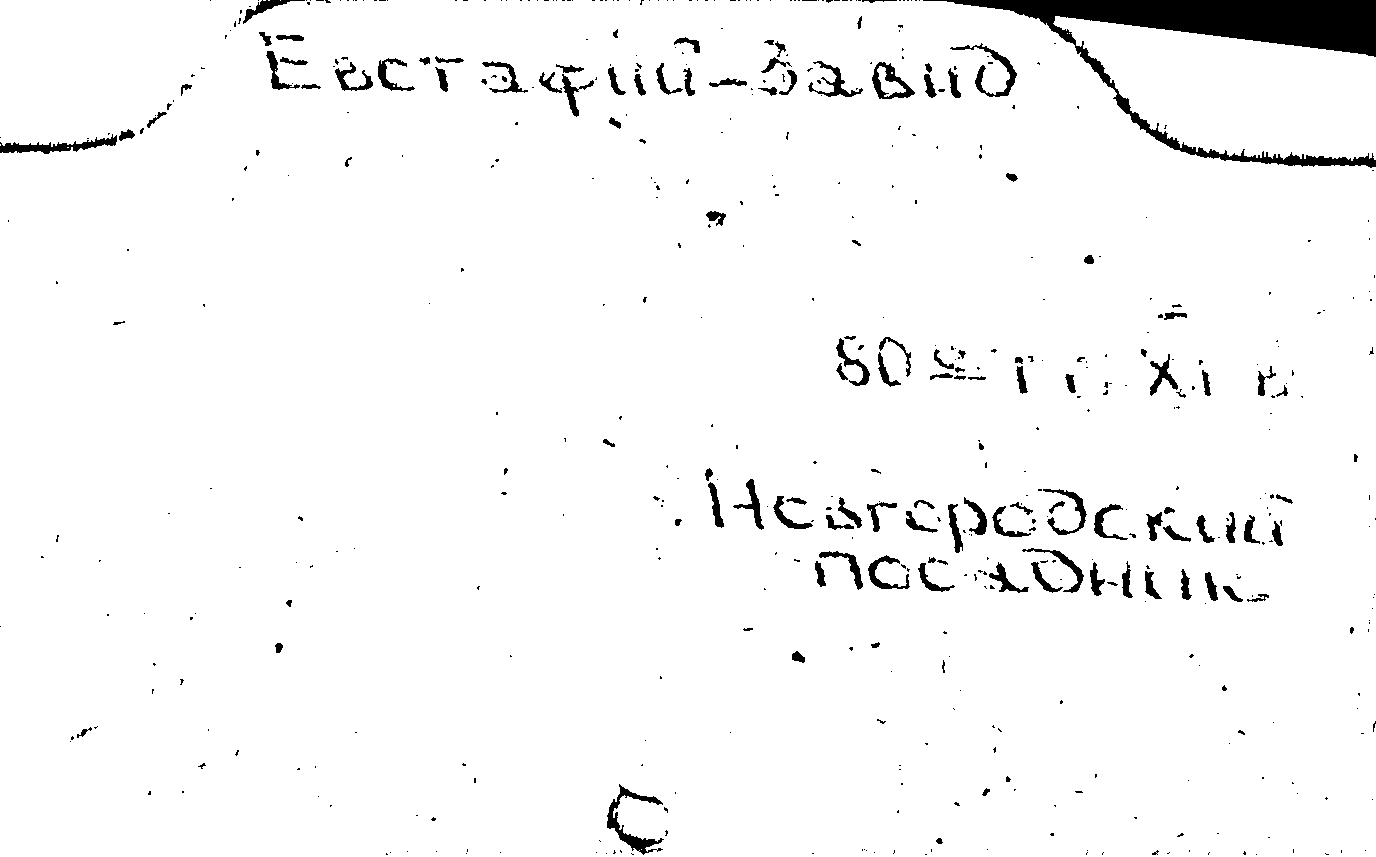 Евстафий-Завид
80е гг. XI в
Новгородский
посадник